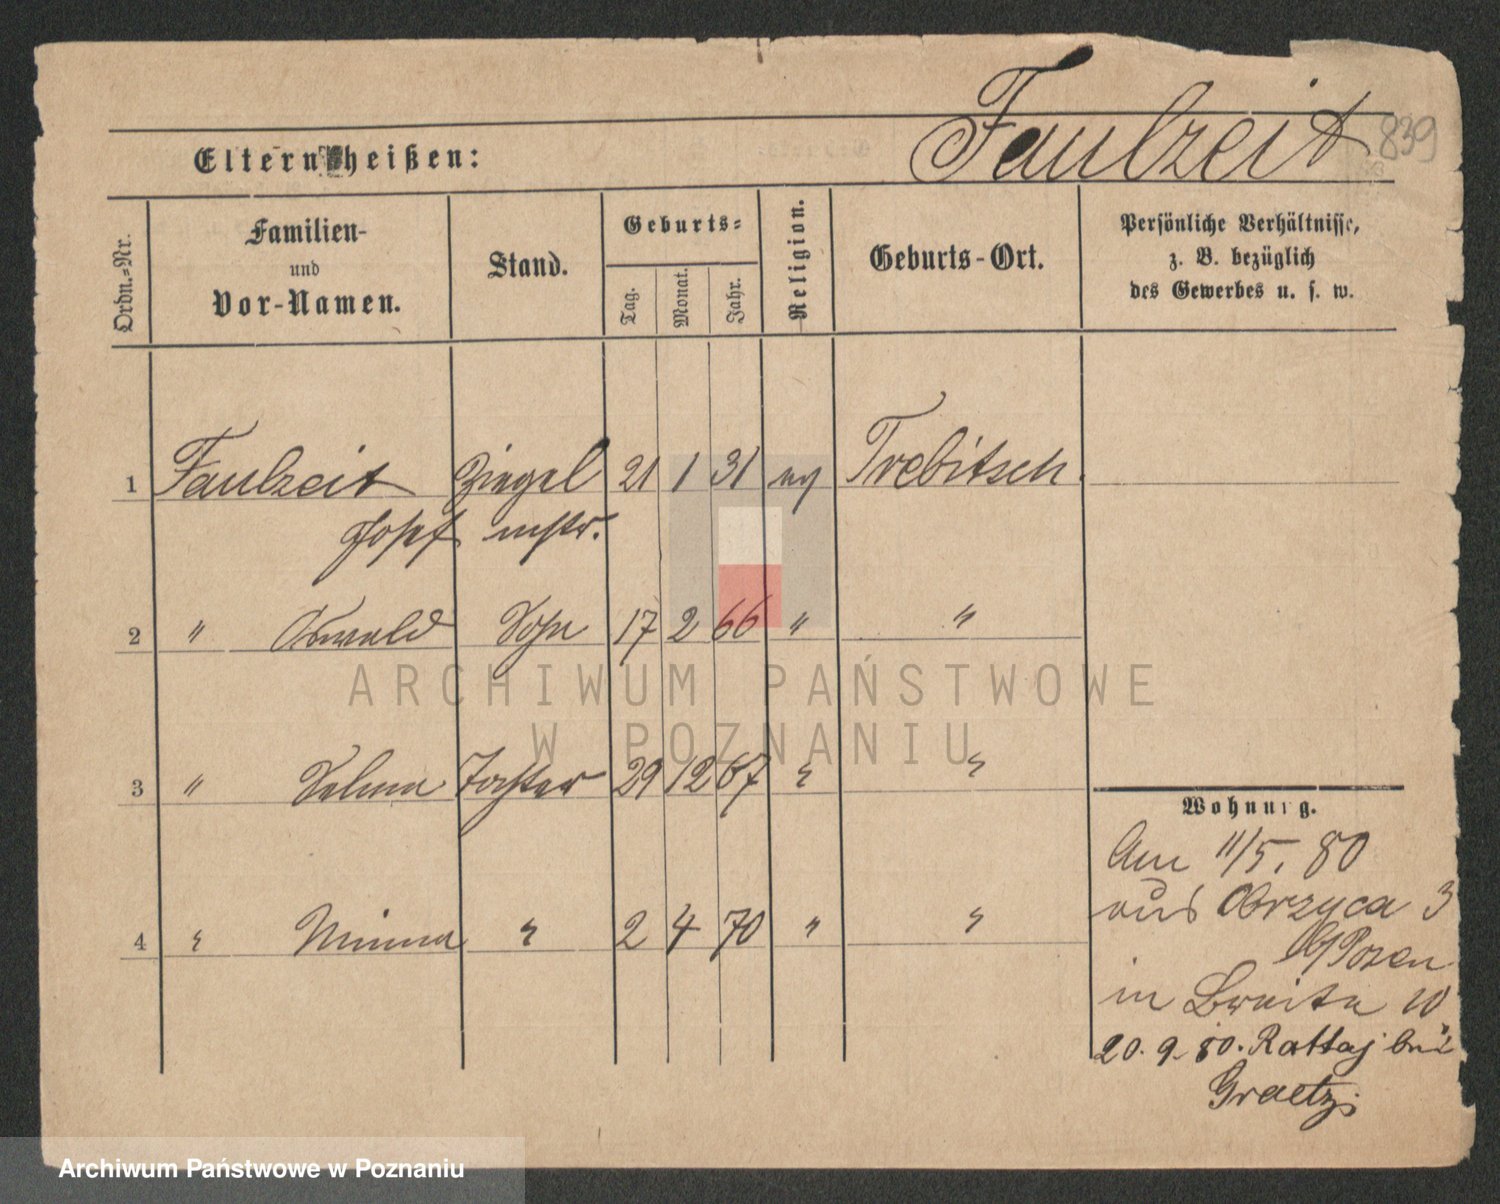 Faulzeit 839
Eltern heißen:
Ordn.-Nr.
Familien-
und
Vor-Namen.
Stand.
Geburts-
Tag.
Monat.
Jahr.
Religion.
Geburts-Ort.
Persönliche Verhältnisse,
z. B. bezüglich
des Gewerbes u. s. w.
1 Faulzeit Ziegel 21 1 31 ev Trebitsch.
Josef mstr.
2 " Oswald Sohn 17 2 66 " "
3 " Selma Tochter 29 12 67 " "
4 " Minna " 2 4 70 " "
Wohnung.
Am 11/5. 80
aus Obrzyca
Posen
in Breite 10
20. 9. 80. Rattaj bei
Graetz
ARCHIWUM PAŃSTWOWE
W POZNANIU
Archiwum Państwowe w Poznaniu